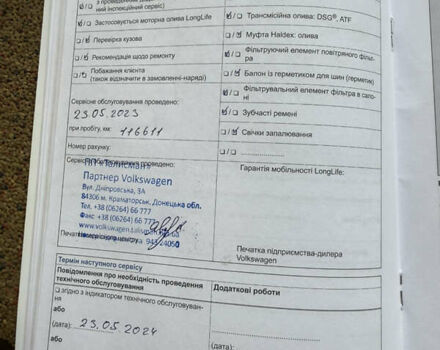 ний інспекційний сервіс)
Застосовується моторна олива LongLife
Перевірка кузова
Рекомендація щодо ремонту
Побажання клієнта
(також відзначити в замовленні-наряді)
Трансмісійна олива: DSG®, ATF
Муфта Haldex: олива
Фільтруючий елемент повітряного фільт-
ра
Балон із герметиком для шин (герметик)
Фільтрувальний елемент фільтра в сало-
ні
Зубчасті ремені
Свічки запалювання
Сервісне обслуговування проведено:
23.05.2023
при пробігу, км: 116611
Номер рахунку:
Сервісне обслуговування проведено:
ПП «Талисман»
Партнер Volkswagen
Вул. Дніпровська, 3А
84306 м. Краматорськ, Донецька обл.
Тел. +38 (06264) 66 777
Факс +38 (06264) 66 777
Гарантія мобільності LongLife:
Печатка підприємства-дилера
Volkswagen
Термін наступного сервісу
Повідомлення про необхідність проведення
технічного обслуговування
згідно з індикатором технічного обслуговуван-
ня
або
(дата): 23.05.2024
або
Додаткові роботи
(дата):